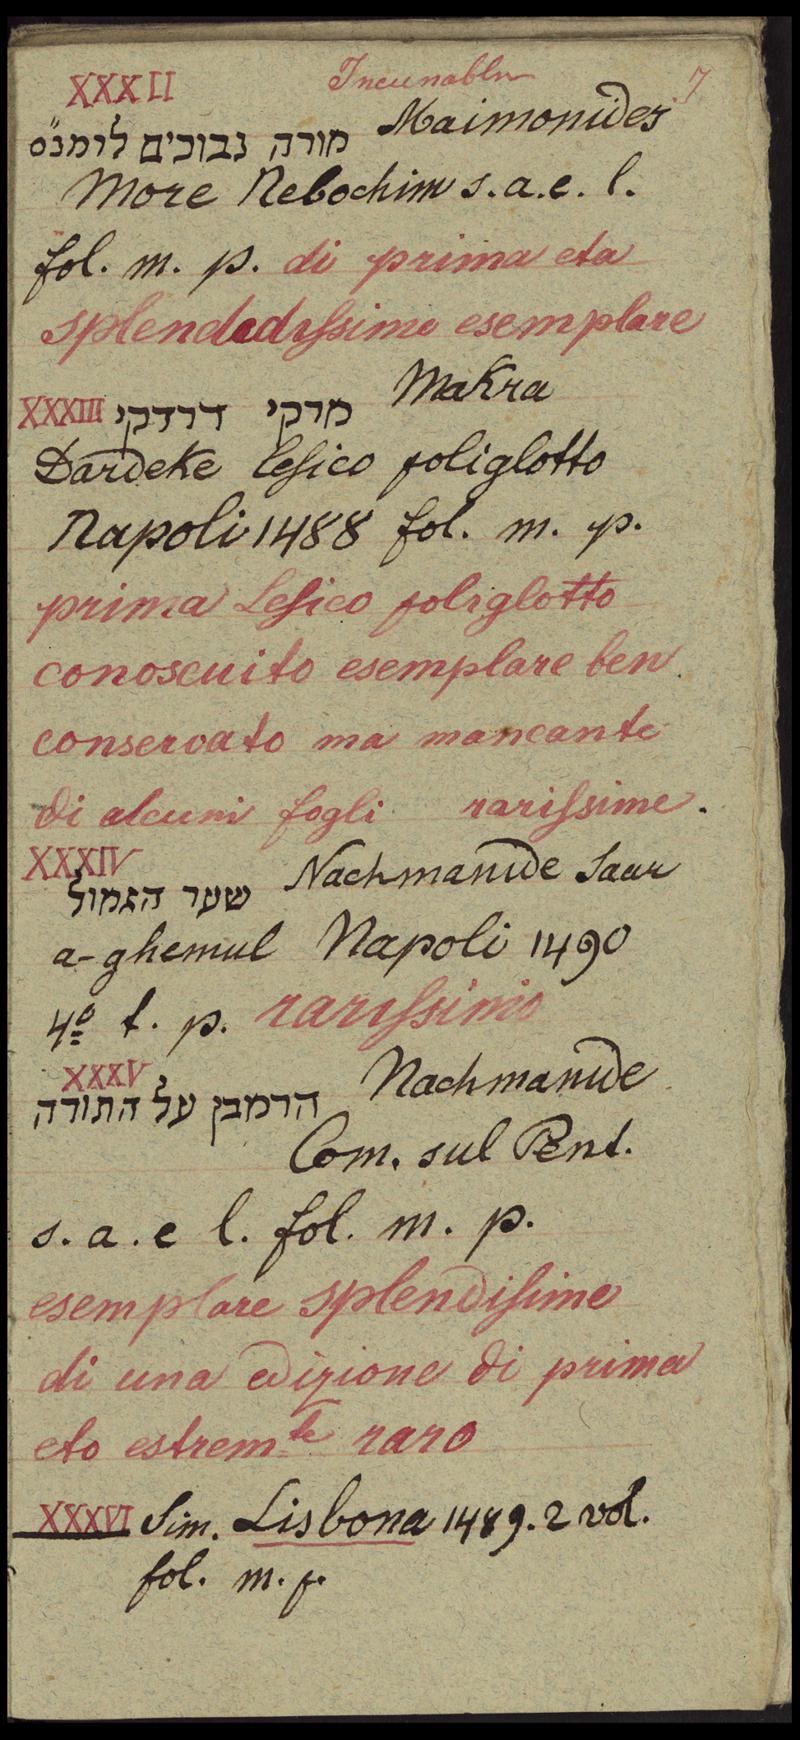 Incunablu 7
XXXII
מורה נבוכים לרמב״ם Maimonides
More Nebochim s. a. e. l.
fol. m. p. di prima eta
splendedissimo esemplare
XXXIII מרקי דרדקי Makra
Dardeke Lessico poliglotto
Napoli 1488 fol. m. p.
prima Lessico poliglotto
conoscuito esemplare ben
conservato ma mancante
di alcuni fogli rarissime.
XXXIV
שער הגמול Nachmanide Saar
a-ghemul Napoli 1490
4º t. p. rarissimo
XXXV
הרמבן על התורה Nachmanide
Com. sul Pent.
s. a. e l. fol. m. p.
esemplare splendissime
di una edizione di prima
eto estrem.te raro
XXXVI Sim. Lisbona 1489. 2 vol.
fol. m. p.